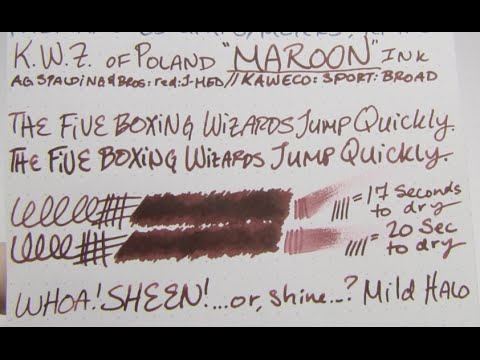 K.W.Z. OF POLAND "MAROON" INK
AG SPALDING & BROS: red: J-MED // KAWECO: SPORT: BROAD
THE FIVE BOXING WIZARDS JUMP QUICKLY.
THE FIVE BOXING WIZARDS JUMP QUICKLY.
= 17 Seconds
to dry
= 20 Sec
to dry
WHOA! SHEEN!...or, shine...? Mild HALO